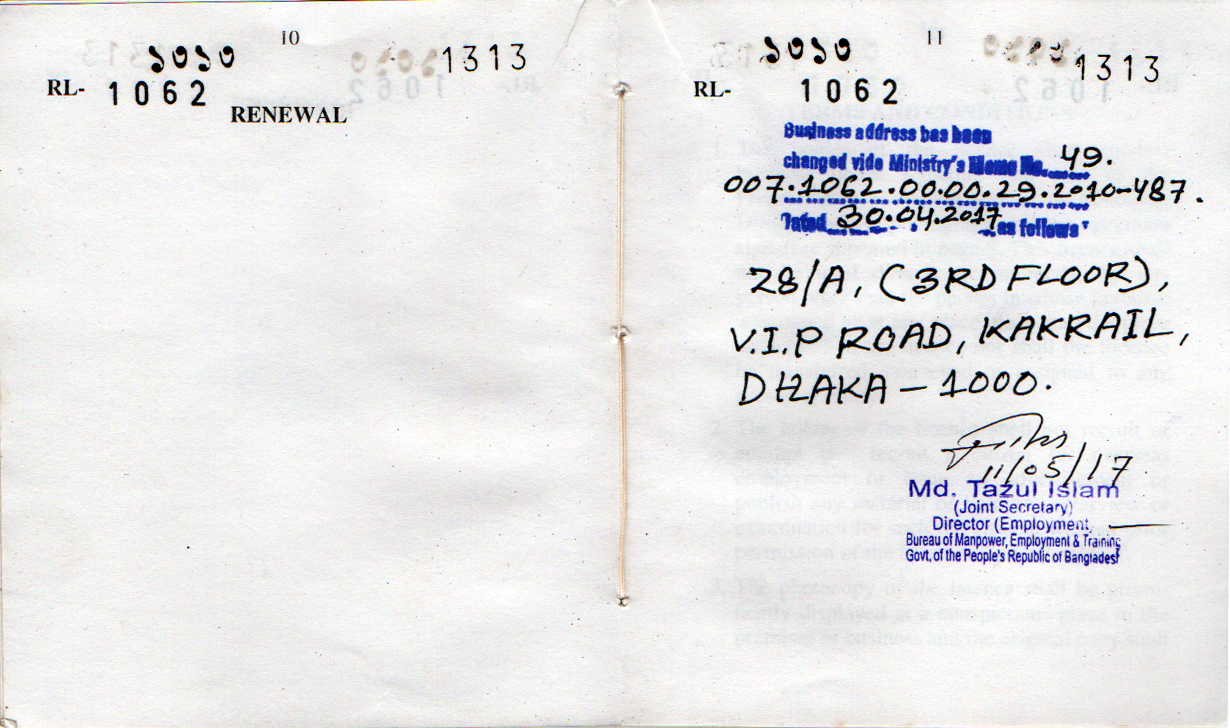 10
১০১০
1313
RL- 1062
RENEWAL
11
১০১০
1313
RL- 1062
Business address has been
changed vide Ministry's Memo No. 49.
007.1062.00.00.29.2010-487.
Dated 30.04.2017 as follows"
28/A, (3RD FLOOR),
V.I.P ROAD, KAKRAIL,
DHAKA - 1000.
11/05/17
Md. Tazul Islam
(Joint Secretary)
Director (Employment,
Bureau of Manpower, Employment & Training
Govt. of the People's Republic of Bangladesh